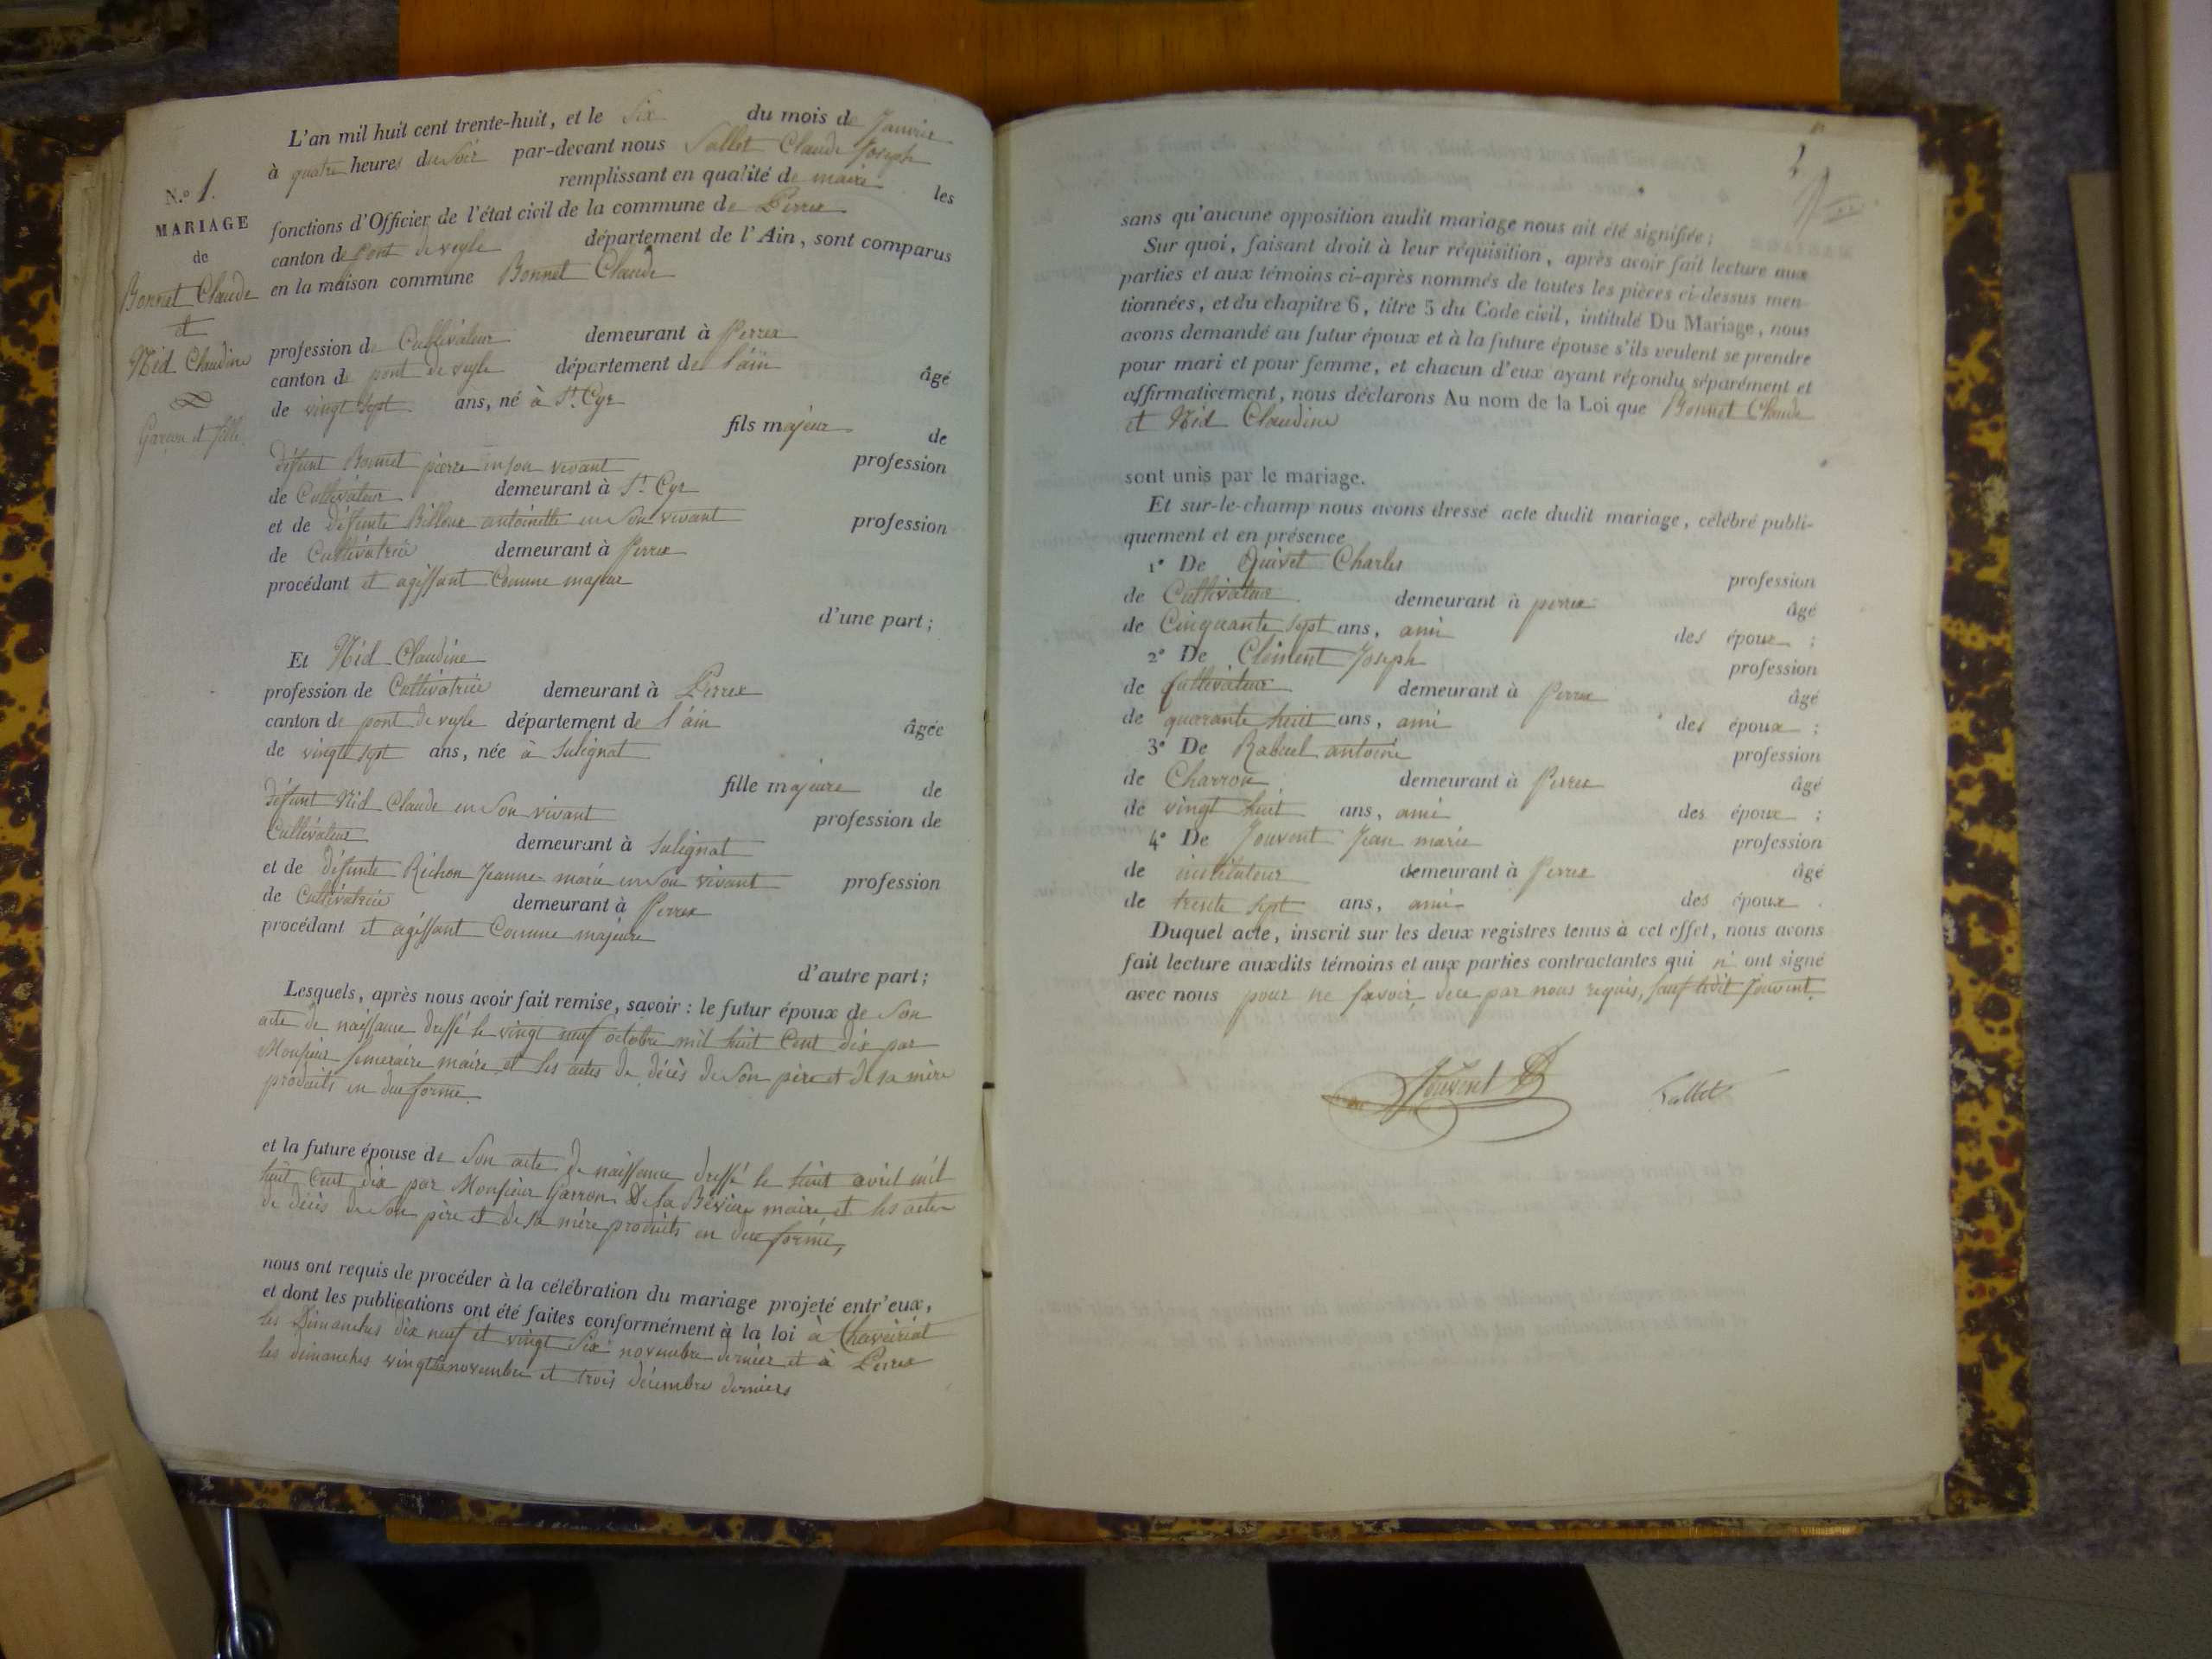 L'an mil huit cent trente-huit, et le Six du mois de Janvier
à quatre heures du Soir par-devant nous Sallet Claude Joseph
remplissant en qualité de maire les
fonctions d'Officier de l'état civil de la commune de Perrex
canton de Pont de veyle département de l'Ain, sont comparus
en la maison commune Bonnet Claude
N.° 1.
MARIAGE
de
Bonnet Claude
et
Nid Claudine
Garçon et fille
profession de Cultivateur demeurant à Perrex
canton de pont de veyle département de l'ain âgé
de vingt Sept ans, né à St. Cyr
fils majeur de
défunt Bonnet pierre en son vivant profession
de Cultivateur demeurant à St Cyr
et de défunte antoinette en Son vivant profession
de Cultivatrice demeurant à Perrex
procédant et agissant Comme majeur
d'une part;
Et Nid Claudine
profession de Cultivatrice demeurant à Perrex
canton de pont de veyle département de l'ain âgée
de vingt sept ans, née à Sulignat
fille majeure de
défunt Nid Claude en Son vivant profession de
Cultivateur demeurant à Sulignat
et de défunte Richon Jeanne marie en Son vivant profession
de Cultivatrice demeurant à Perrex
procédant et agissant Comme majeure
d'autre part;
Lesquels, après nous avoir fait remise, savoir : le futur époux de Son
acte de naissance dressé le vingt neuf octobre mil huit Cent dix par
Monsieur maire et les actes de décès de Son père et de sa mère
produits en due forme.
et la future épouse de Son acte de naissance dressé le huit avril mil
huit Cent dix par Monsieur Garron De la Bévière maire et les actes
de décès de Son père et de sa mère produits en due forme,
nous ont requis de procéder à la célébration du mariage projeté entr'eux,
et dont les publications ont été faites conformément à la loi à Chaveiriat
les Dimanches dix neuf et vingt Six novembre dernier et à Perrex
les dimanches novembre et trois décembre derniers
sans qu'aucune opposition audit mariage nous ait été signifiée;
Sur quoi, faisant droit à leur réquisition, après avoir fait lecture aux
parties et aux témoins ci-après nommés de toutes les pièces ci-dessus men-
tionnées, et du chapitre 6, titre 5 du Code civil, intitulé Du Mariage, nous
avons demandé au futur époux et à la future épouse s'ils veulent se prendre
pour mari et pour femme, et chacun d'eux ayant répondu séparément et
affirmativement, nous déclarons Au nom de la Loi que Bonnet Claude
et Nid Claudine
sont unis par le mariage.
Et sur-le-champ nous avons dressé acte dudit mariage, célébré publi-
quement et en présence
1° De Quivet Charles profession
de Cultivateur demeurant à perrex âgé
de Cinquante Sept ans, ami des époux ;
2° De Clément Joseph profession
de Cultivateur demeurant à Perrex âgé
de quarante huit ans, ami des époux ;
3° De Rabuel antoine profession
de Charron demeurant à Perrex âgé
de vingt huit ans, ami des époux ;
4° De Jouvent Jean marie profession
de instituteur demeurant à Perrex âgé
de trente Sept ans, ami des époux .
Duquel acte, inscrit sur les deux registres tenus à cet effet, nous avons
fait lecture auxdits témoins et aux parties contractantes qui n' ont signé
avec nous pour ne Savoir de ce par nous requis, Sauf ledit Jouvent.
Jouvent Sallet